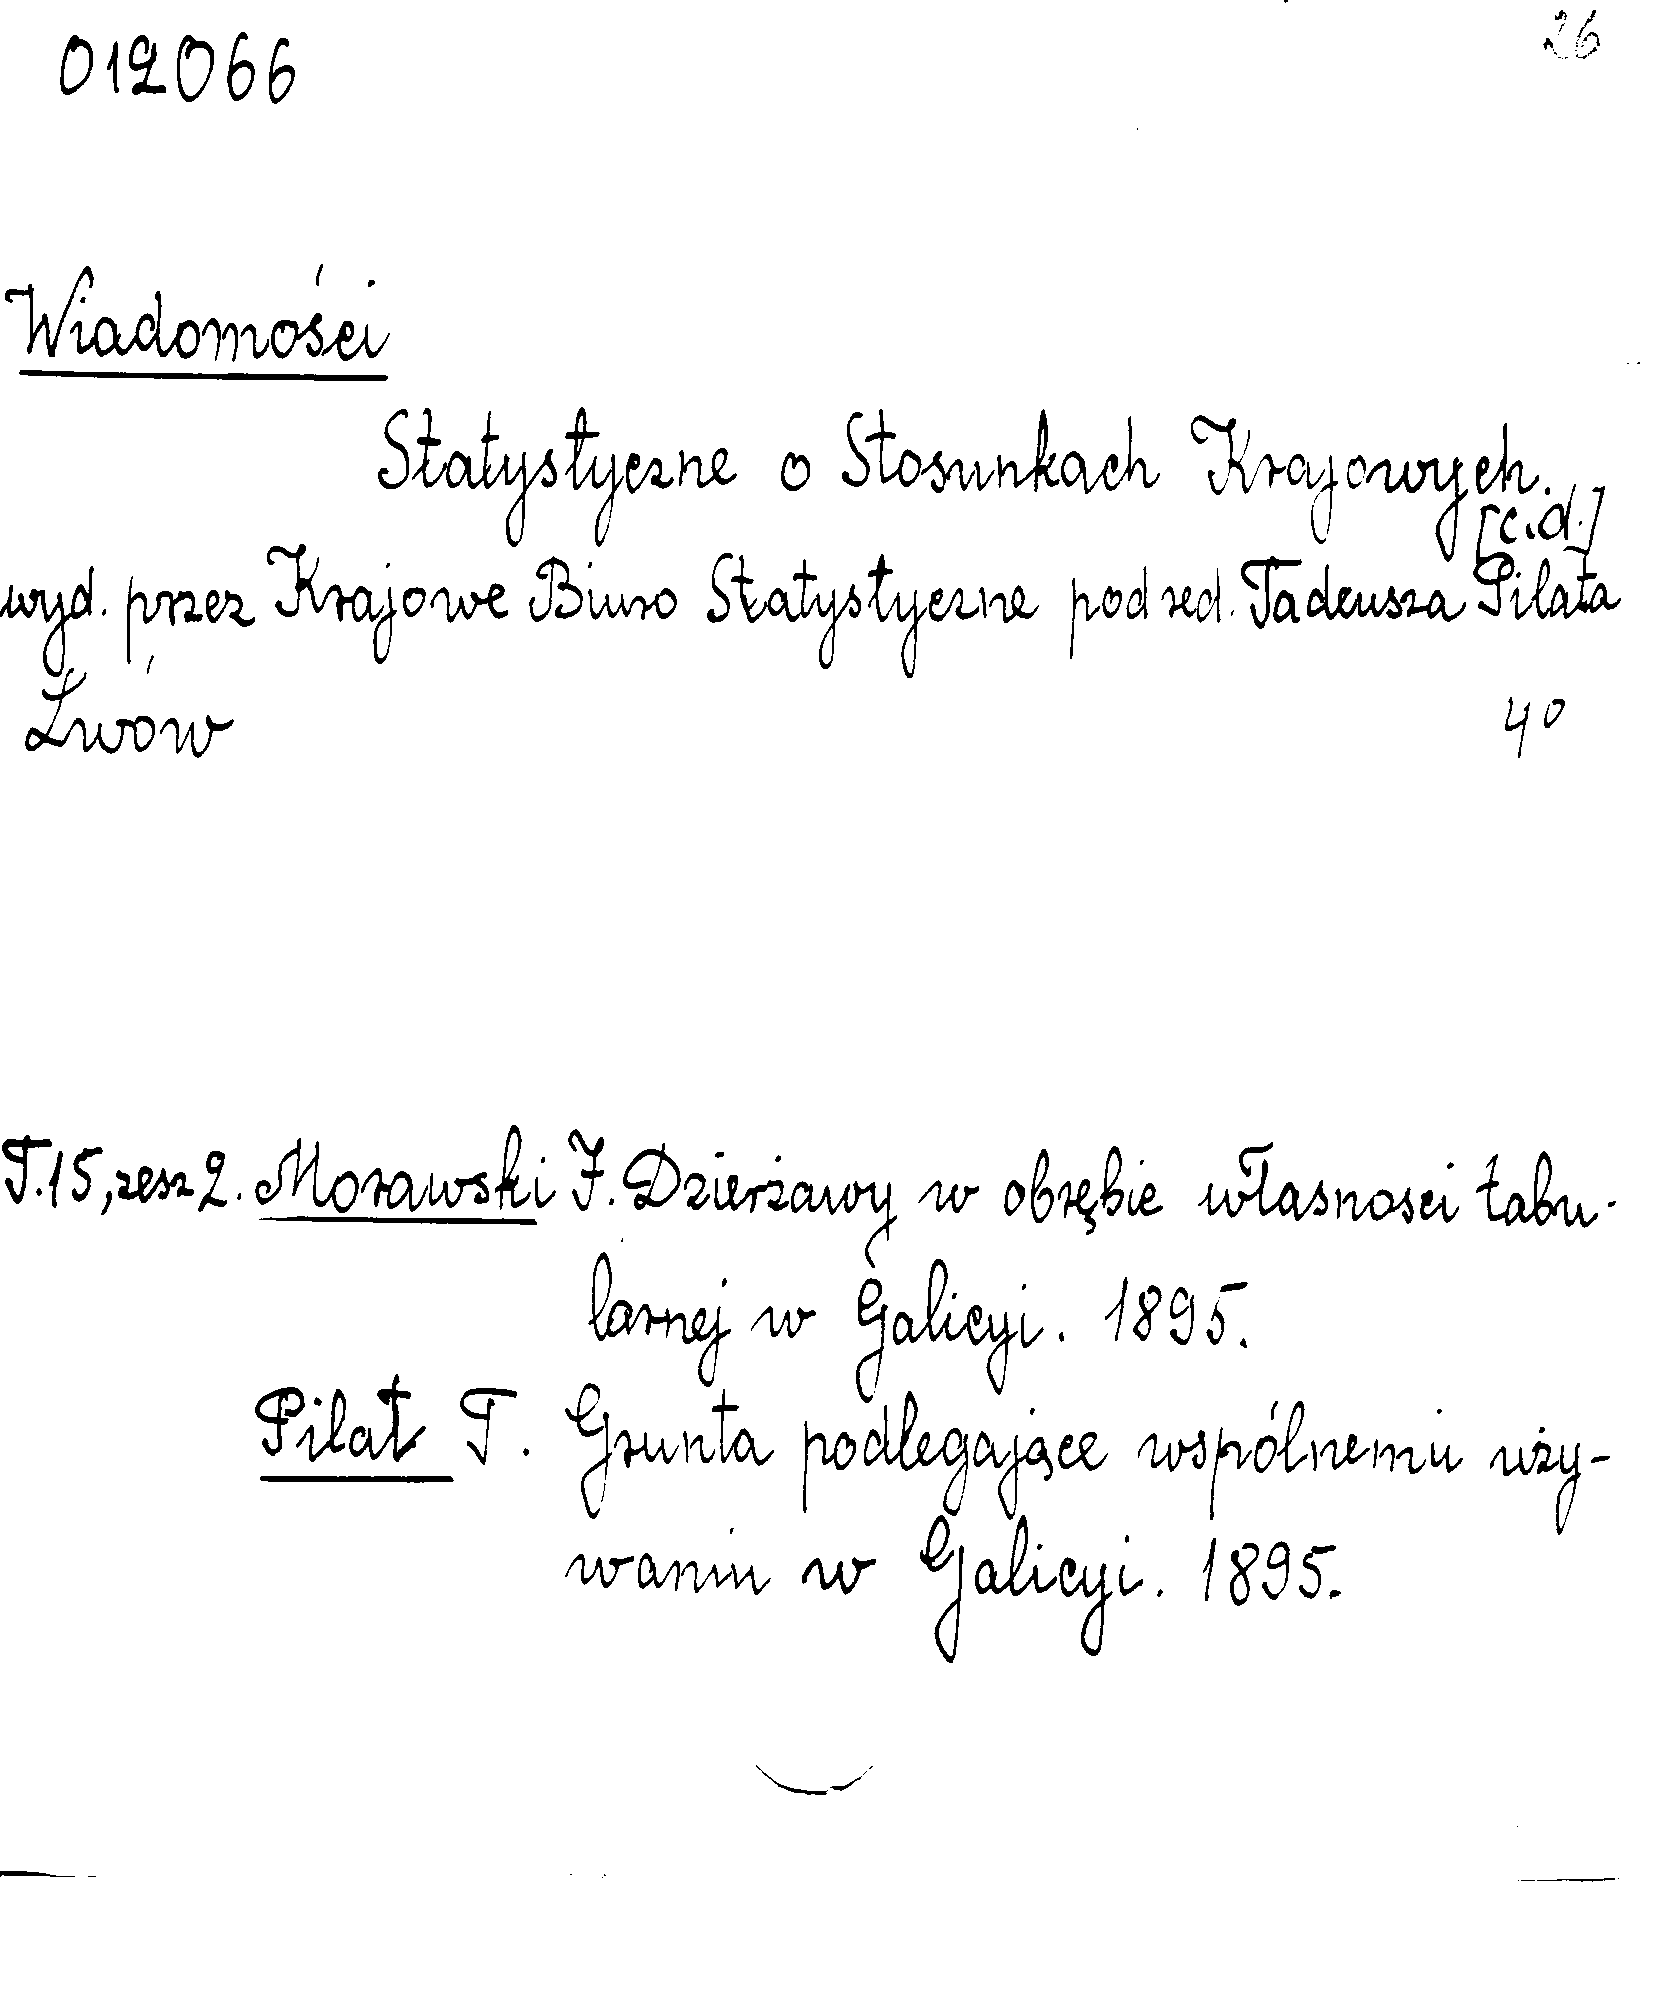 26
012066
Wiadomości
Statystyczne o Stosunkach Krajowych.
[c.d.]
wyd. przez Krajowe Biuro Statystyczne pod red. Tadeusza Pilata
Lwów 4°
T.15, zesz 2. Morawski J. Dzierżawy w obrębie własnosci tabu-
larnej w Galicyi. 1895.
Pilat T. Grunta podlegające wspólnemu uży-
waniu w Galicyi. 1895.